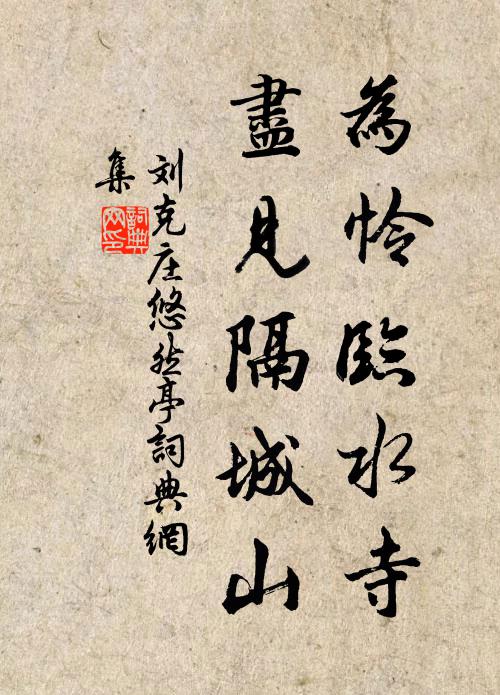 為怜臨水寺
盡見隔城山
刘克庄悠然亭詞典網
集
詞典
网印